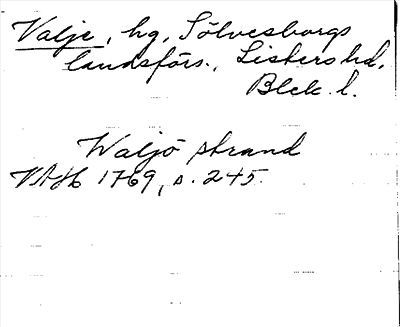 Valje, hg, Sölvesborgs
landsförs., Listers hd,
Blek. l.
Waljö strand
VAH 1769, s. 245.